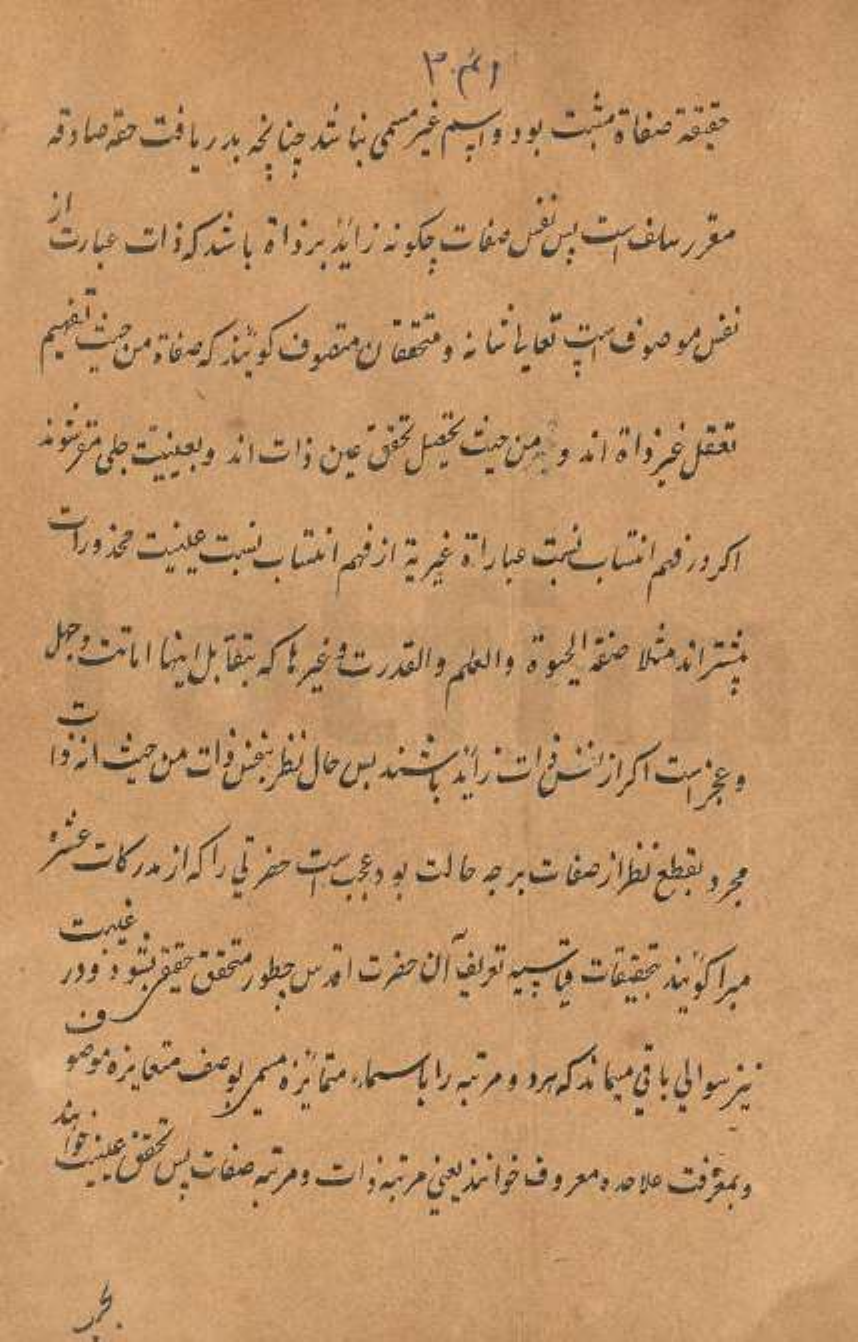 حقیقة صفاة مثبت بود و اسم غیر مسمی نباشد چنانچه بدریافت حقه صادقه
مقرر سلف است پس نفس صفات چکونه زائد بر ذاة باشد که ذات عبارت از
نفس موصوف است تعالی شانه و متحققان متصوف کویند که صفاة من حیث تفهیم
تعقل غیر ذاة اند و من حیث تحصیل تحقق عین ذات اند و بعینیت جلی مقر شوند
اکر در فهم انتساب نسبت عباراة غیریة از فهم انتساب نسبت عینیت محذورات
بیشتر اند مثلا صفة الحیوة والعلم والقدرت و غیرها که بتقابل اینها اماتت و جهل
و عجز است اکر از نفس ذات زائد باشند بس حال نظر بنفس ذات من حیث انه ذات
مجرد بقطع نظر از صفات برچه حالت بود عجب است حضرتی را که از مدرکات عشره
مبرا کویند بتحقیقات قیاسیه تعریف آن حضرت اقدس چطور متحقق حقیقی بشود و در غیریت
نیز سوالی باقی میماند که هرد و مرتبه را باسماء متمائزه مسمی بوصف متغایره موصوف
و بمعرفت علاحده معروف خوانند یعنی مرتبه ذات و مرتبه صفات پس تحقق عینیت خواهند